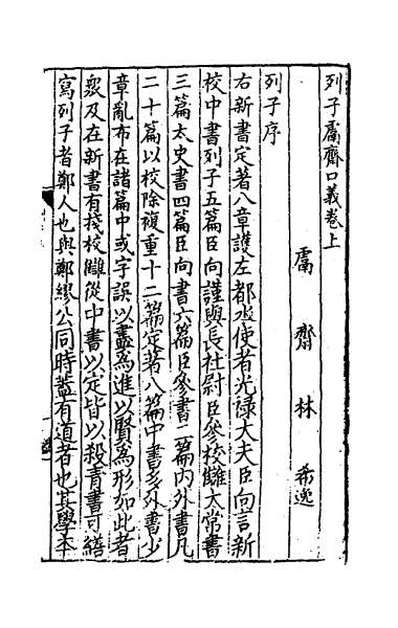 列子鬳齋口義卷上
鬳齋林希逸
列子序
右新書定著八章護左都水使者光祿大夫臣向言新
校中書列子五篇臣向謹與長社尉臣參校讎太常書
三篇太史書四篇臣向書六篇臣參書二篇內外書凡
二十篇以校除複重十二篇定著八篇中書多外書少
章亂布在諸篇中或字誤以盡為進以賢為形如此者
衆及在新書有棧校讎從中書以定皆以殺青書可繕
寫列子者鄭人也與鄭繆公同時蓋有道者也其學本